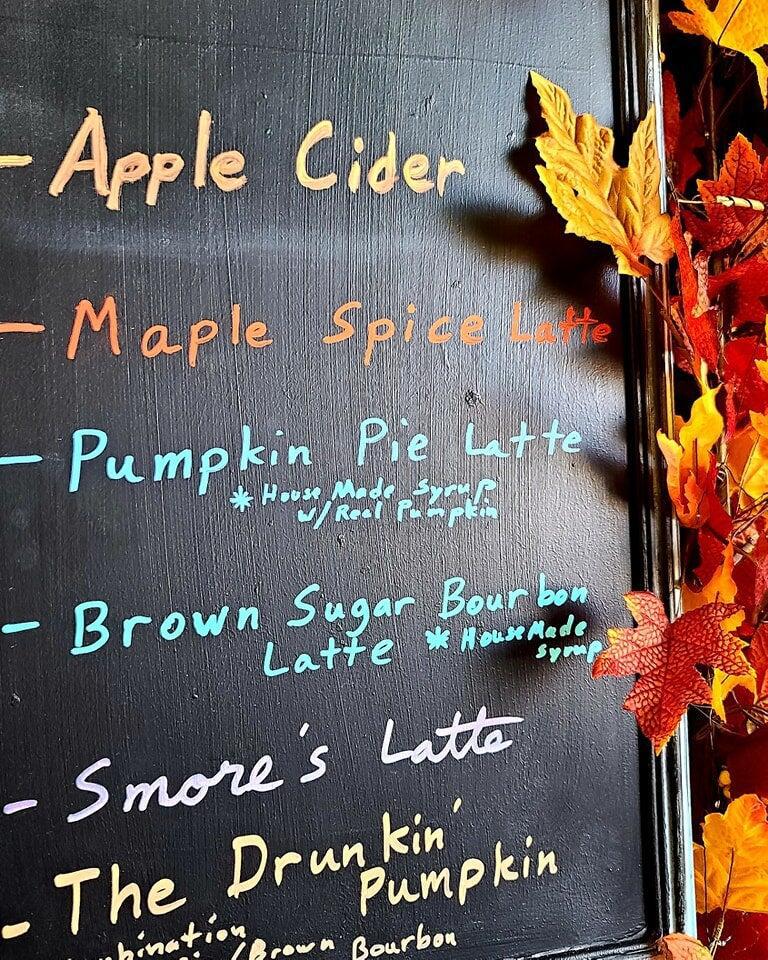 - Apple Cider
- Maple Spice Latte
- Pumpkin Pie Latte
* House Made Syrup
w/Real Pumpkin
- Brown Sugar Bourbon
Latte * House Made
Syrup
- Smore's Latte
- The Drunkin'
Pumpkin
/Brown Bourbon